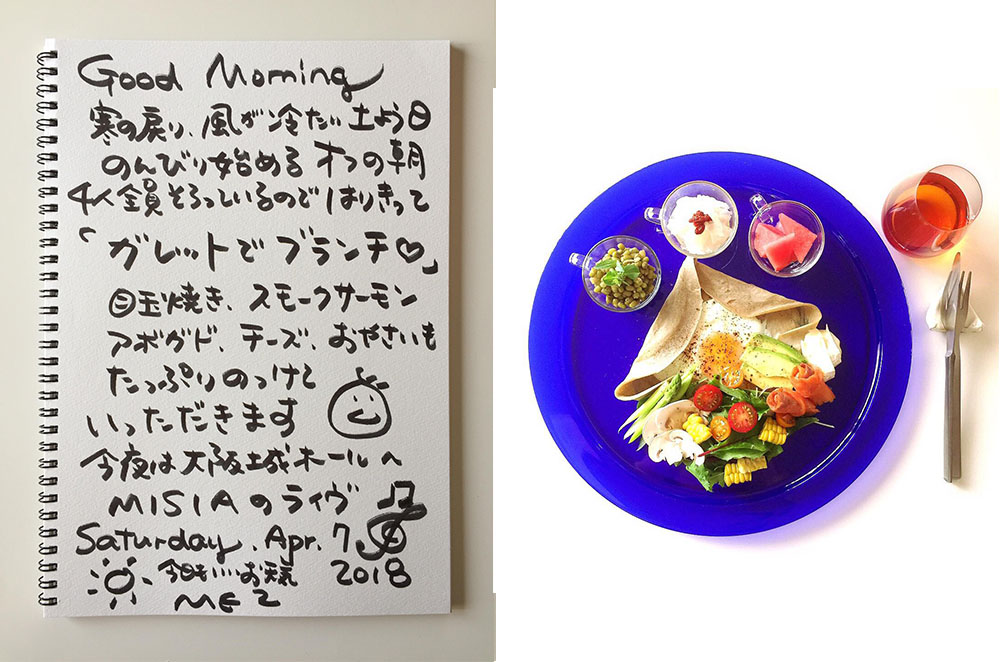 Good Morning
寒の戻り、風が冷たい土よう日
のんびり始める オフの朝
4人全員そろっているのではりきって
「ガレットでブランチ♡」
目玉焼き、スモークサーモン
アボガド、チーズ、おやさいも
たっぷりのっけて
いっただきます
今夜は大阪城ホールへ
MISIAのライヴ
Saturday, Apr. 7
2018
今日も・・・・お天気